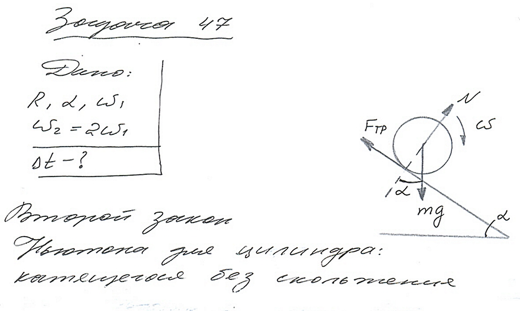 Задача 47
Дано:
R, α, ω₁
ω₂ = 2ω₁
Δt - ?
N
Fтр
ω
α
mg
α
Второй закон
Ньютона для цилиндра:
катящегося без скольжения